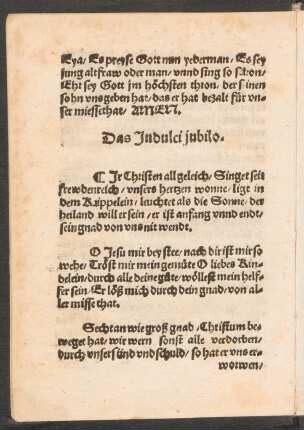 Eya/ Es preyse Gott nun yederman/ Es sey
jung alt fraw oder man/ vnnd sing so schon/
Ehr sey Gott jm höchsten thron/ der sinen
sohn vns geben hat/ das er hat bezalt für vn-
ser missethat/ AMEN.
Das Indulci jubilo.
IR Christen all geleich/ Singet seit
frewdenreich/ vnsers hertzen wonne/ ligt in
dem Krippelein/ leuchtet als die Sonne/ der
heiland will er sein/ er ist anfang vnnd endt/
sein gnad von vns nit wendt.
O Jesu mir beystee/ nach dir ist mir so
wehe/ Tröst mir mein gemüte O liebes Kin-
delein/ durch alle deine güte/ wöllest mein helf-
fer sein/ Erlöß mich durch dein gnad/ von al-
ler missethat.
Secht an wie groß gnad/ Christum be-
weget hat/ wir wern sonst alle verdorben/
durch vnser sünd vnd schuld/ so hat er vns er-
worwen/